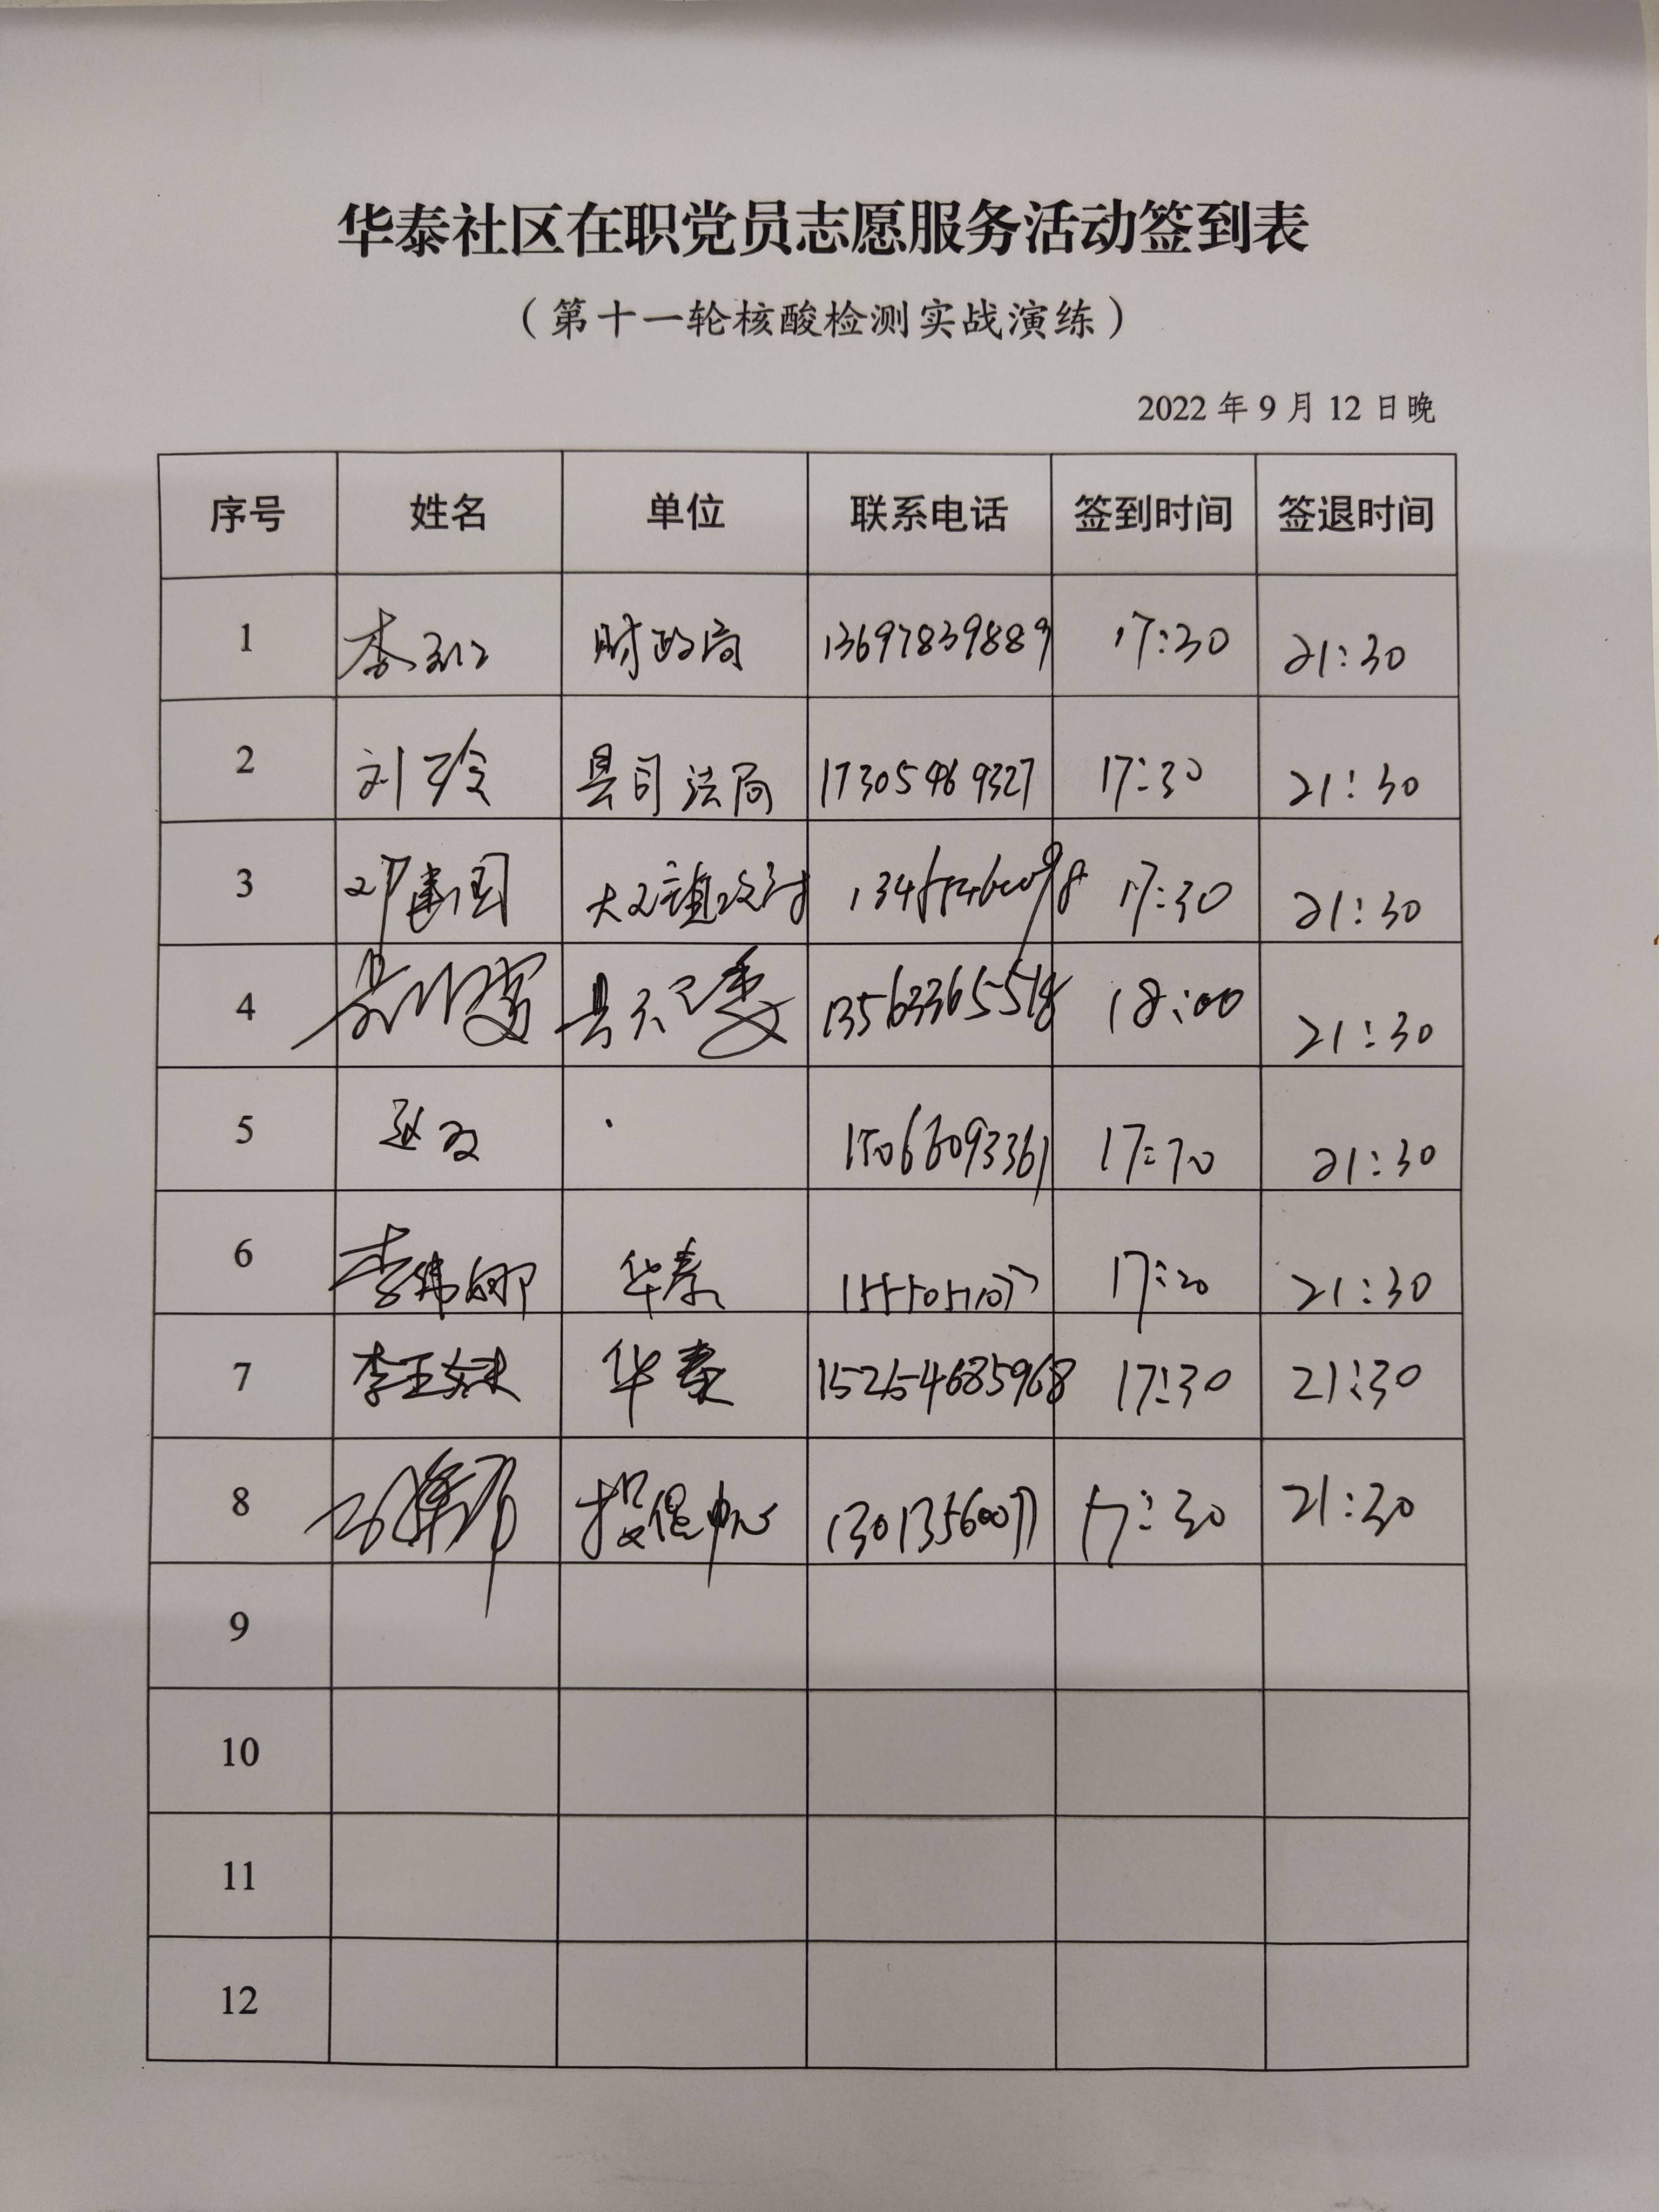 华泰社区在职党员志愿服务活动签到表
（第十一轮核酸检测实战演练）
2022 年 9 月 12 日晚
序号 姓名 单位 联系电话 签到时间 签退时间
1 李 财政局 13697839889 17:30 21:30
2 刘玲 县司法局 17305469327 17:30 21:30
3 邓建国 17:30 21:30
4 县 委 13563365518 18:00 21:30
5 15066093361 21:30
6 李纬娜 华泰 21:30
7 李玉 华泰 15254685968 17:30 21:30
8 投促中心 17:30 21:30
9
10
11
12